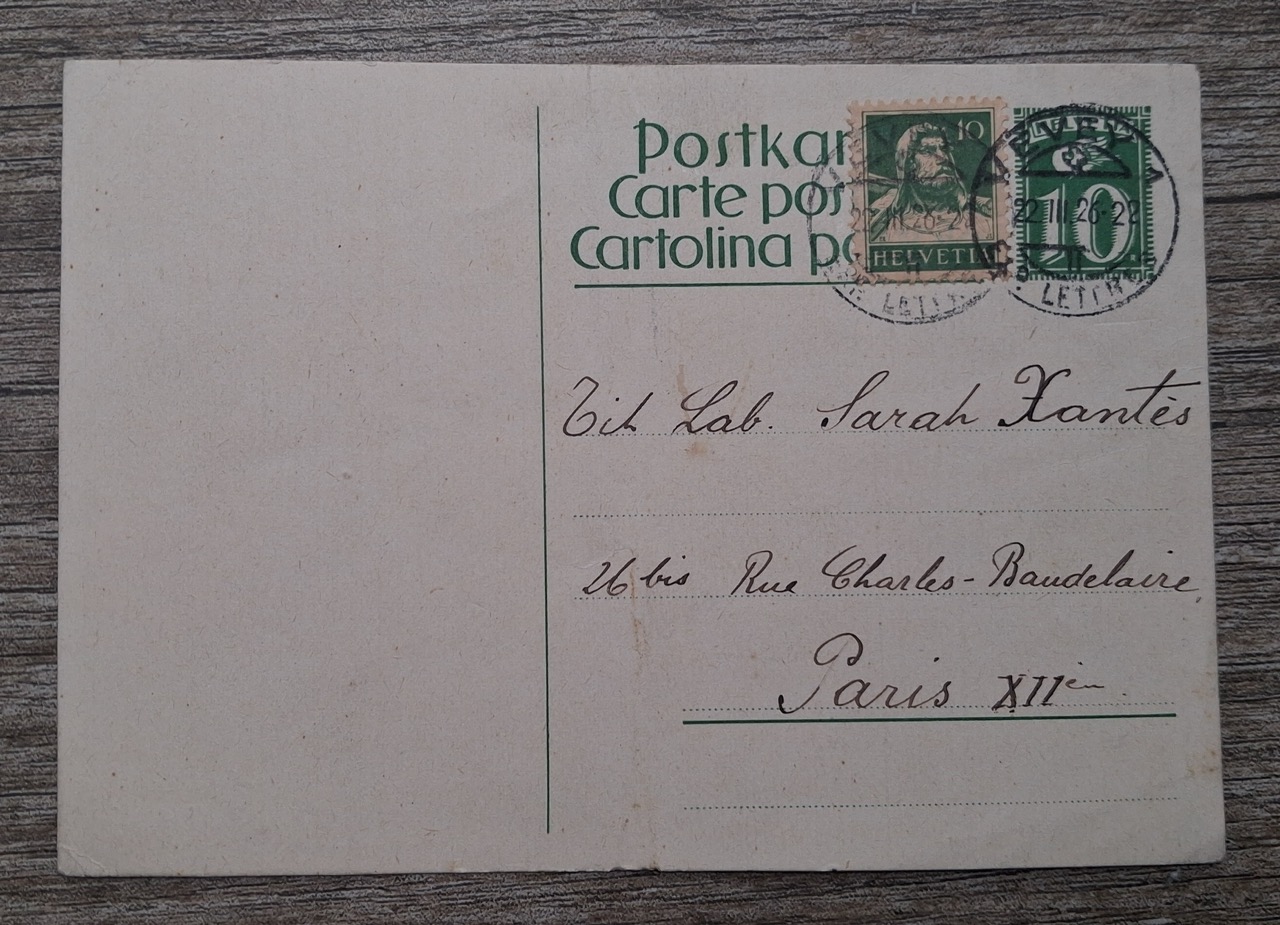 Postkar
Carte pos
Cartolina po
10
HELVETIA
VEVEY 1
22 III 26-22
EXP. LETTRES
10
Tit Lab. Sarah Xantès
26 bis Rue Charles-Baudelaire,
Paris XIIèm